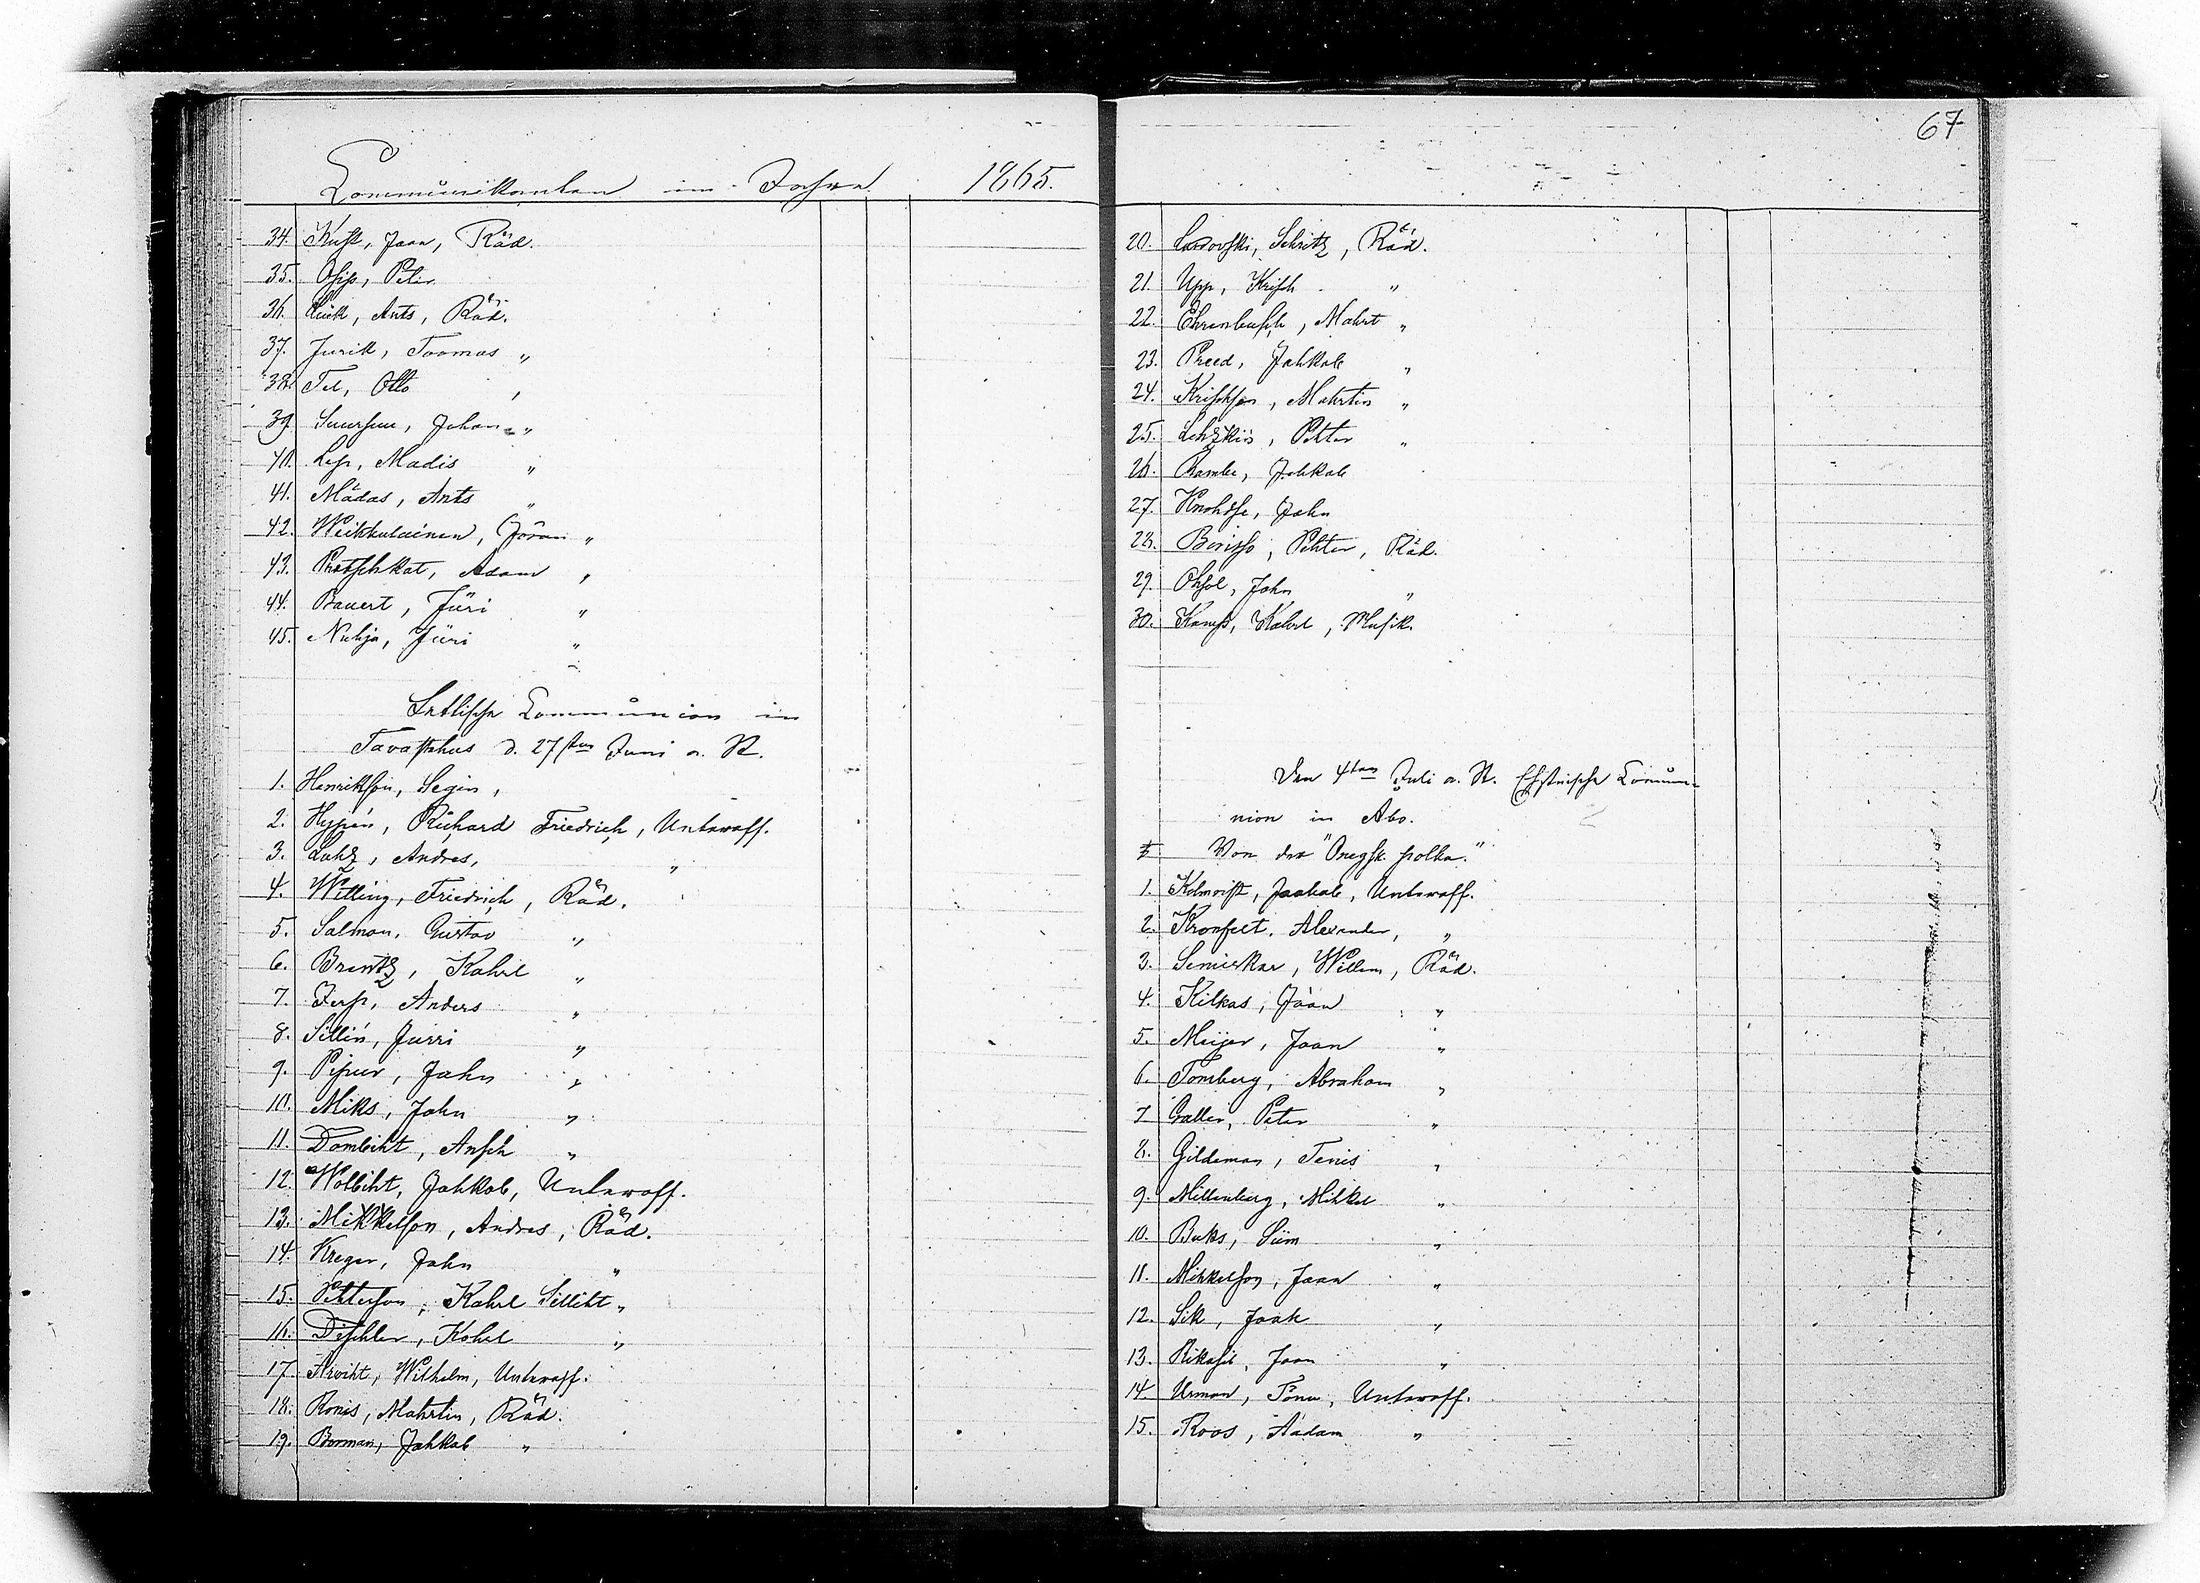 Communikanten im Jahre 1865.
34. Kust, Jaan, Räd.
35. Ossip, Peter
36. Luik, Ants, Räd.
37. Jurik, Toomas "
38. Tel, Otto "
39. Suursuu, Johan "
40. Lep, Madis "
41. Mädas, Ants "
42. Weikkulainen, Jöran "
43. Protschkat, Adam "
44. Bauert, Jüri "
45. Nuhja, Jüri "
Lettische Communion in
Tavasthus d. 27sten Juni a. St.
1. Henrikson, Segin,
2. Hypén, Richard Friedrich, Unteroff.
3. Luhz, Andres, "
4. Willing, Friedrich, Räd.
5. Salmon, Gustav "
6. Brentz, Kahrl "
7. Jesp, Anders "
8. Sillin, Jurri "
9. Pipur, Jahn "
10. Miks, Jahn "
11. Dombiht, Ansch "
12. Wolbiht, Jahkob, Unteroff.
13. Mikkelson, Andres, Räd.
14. Kreger, Jahn "
15. Pehterson, Kahrl Silliht "
16. Dischler, Kahrl "
17. Arwiht, Wilhelm, Unteroff.
18. Ronis, Mahrtin, Räd.
19. Borman, Jahkob "
67
20. Schritz, Räd.
21. Upp, Krisch "
22. Ehrenbusch, Mahrt "
23. Preed, Jahkob "
24. Krischson, Mahrtin "
25. Pehter "
26. Rambe, Jahkob
27. Jahn
28. Pehter, Räd.
29. Ohsol, Jahn "
30. Kahrl, Musik.
Den 4ten Juli a. St. Ehstnische Commu-
nion in Åbo.
Von der "Onegsk. polka."
1. Jaakob, Unteroff.
2. Kronfelt, Alexander, "
3. Willem, Räd.
4. Kilkas, Jaan "
5. Meijer, Jaan "
6. Tomberg, Abraham "
7 Galler, Peter "
8. Gildeman, Tenis "
9. Millenberg, Mihkel "
10. Buks, Siim "
11. Mihkelson, Jaan "
12. Sik, Jaak "
13. Jaan "
14. Urman, Tõnu, Unteroff.
15. Roos, Aadam "